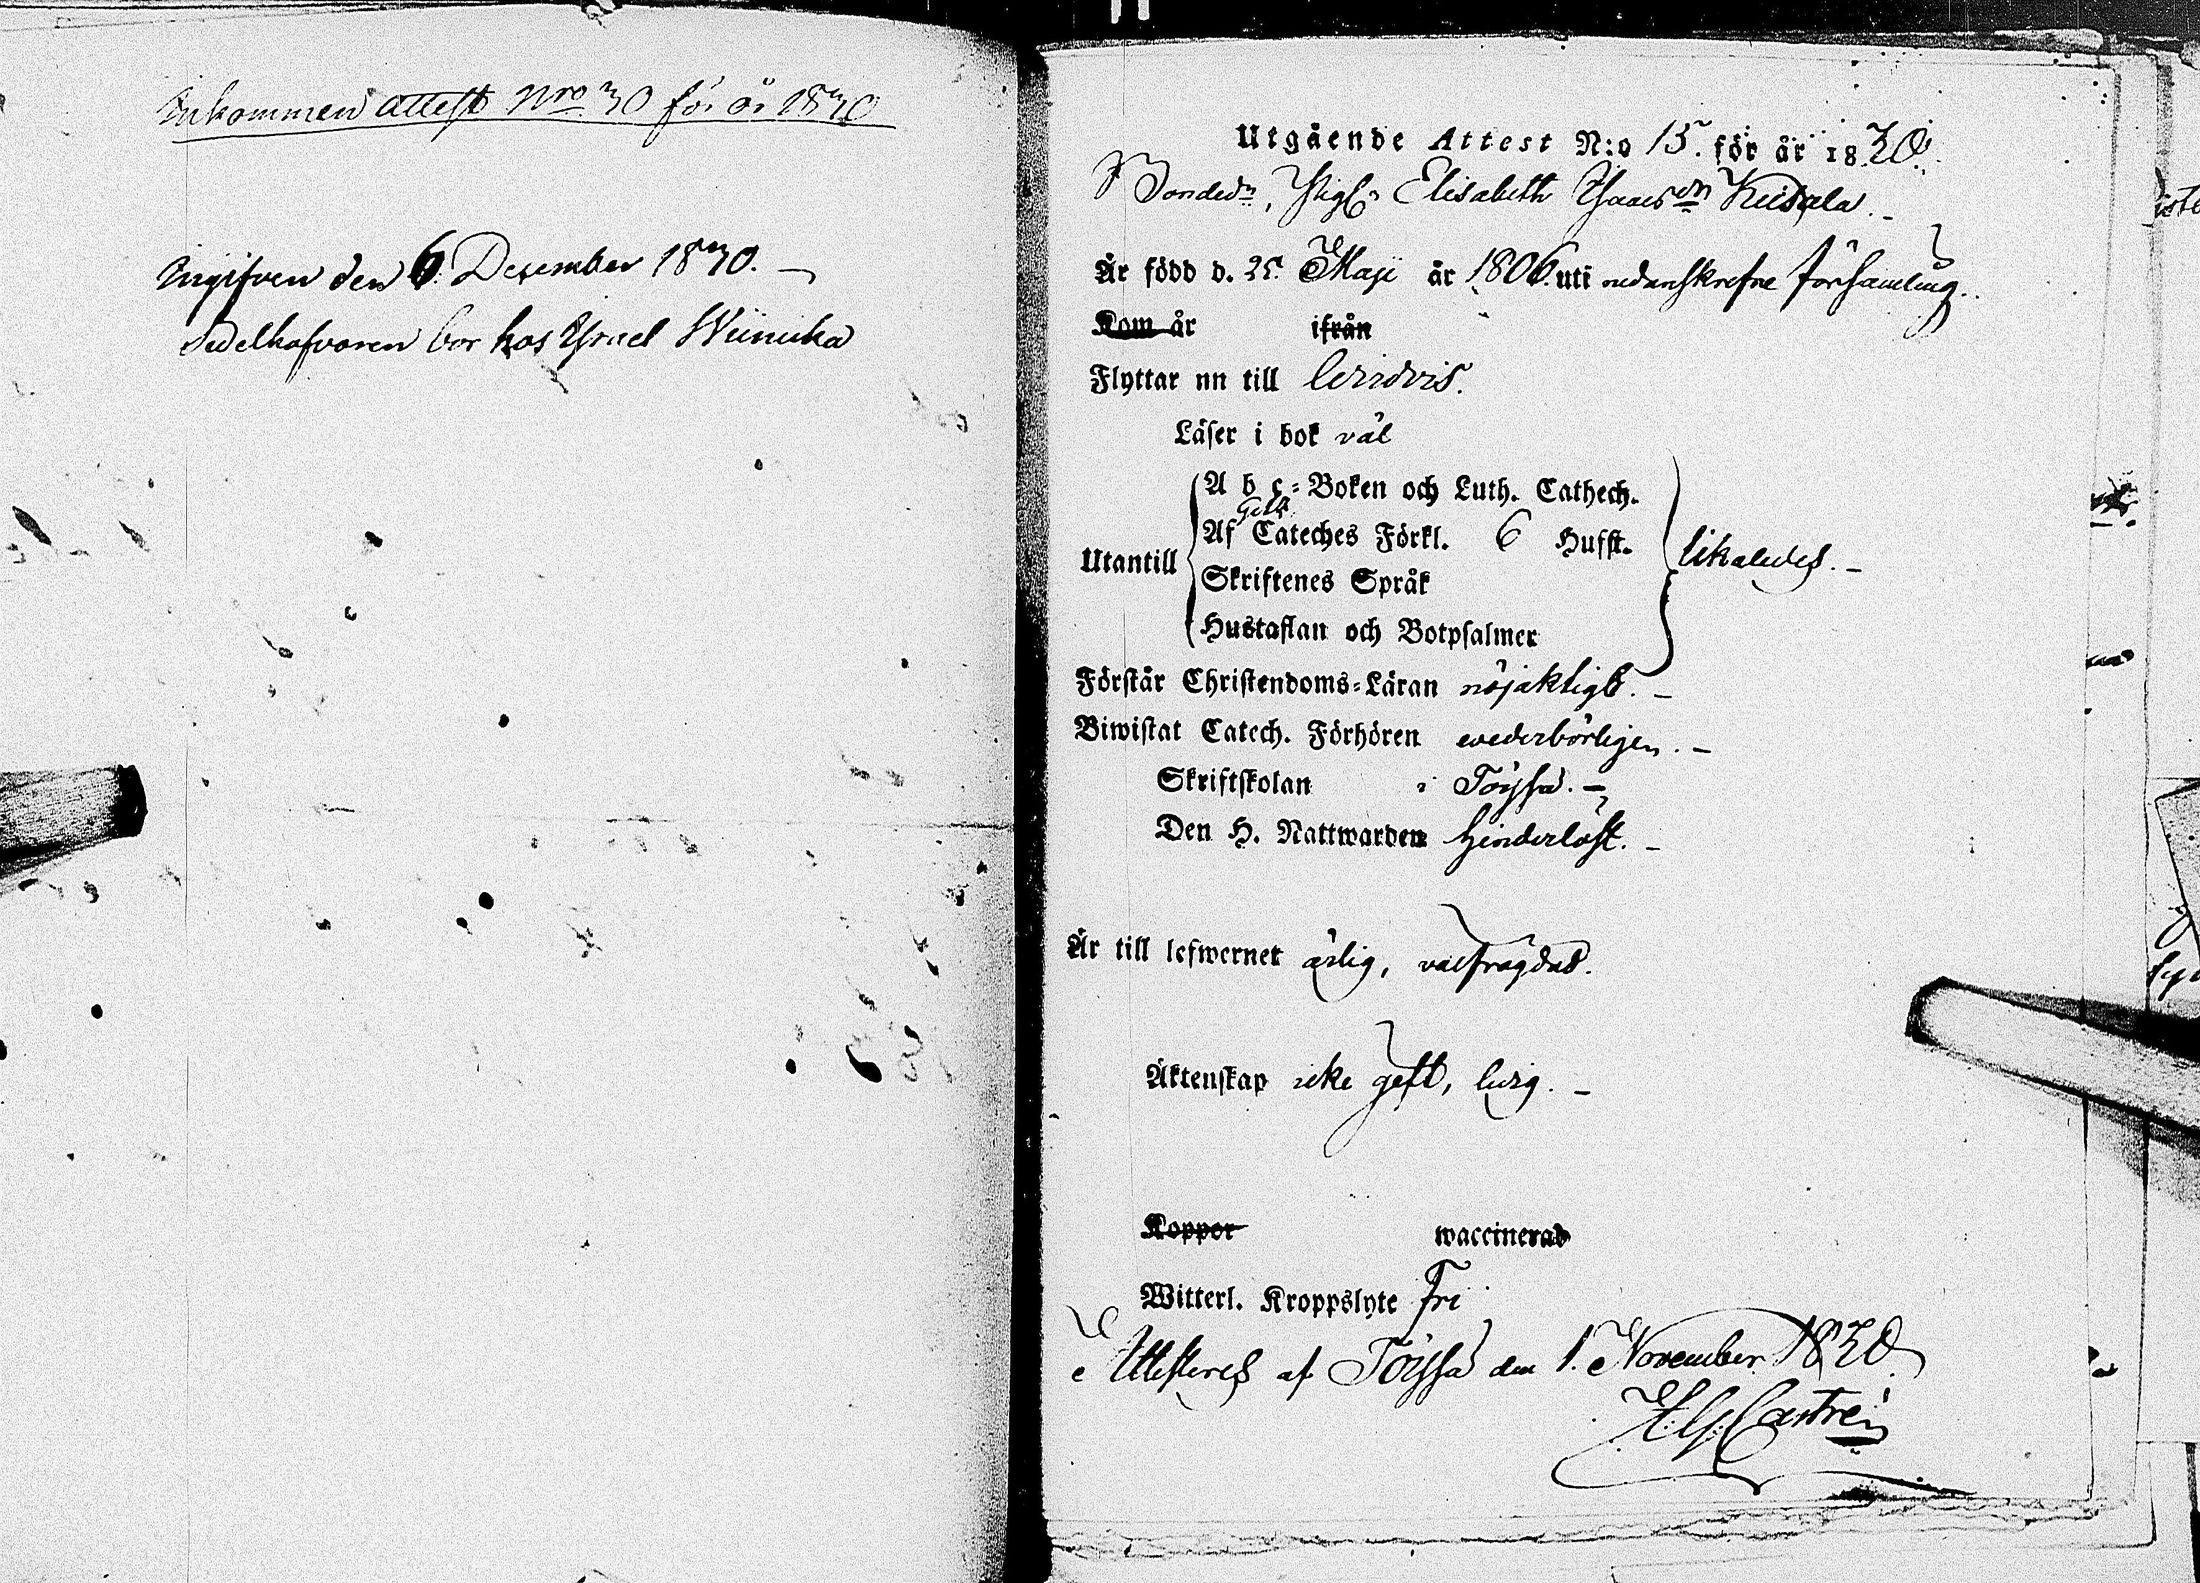 Inkommen attest Nro 30 för år 1830
Ingifven den 6. December 1830. —
Sedelhafvaren bor hos Israel Wiinikka
Utgående Attest N:o 15. för år 1830.
Bonded:r, Pigl. Elisabeth Isaacs dr Keisala. -
Är född d. 25. Maji år 1806. uti nedanskrefne församling.
Kom år ifrån
Flyttar nu till Lerrdvis.
Läser i bok väl
A b c-Boken och Luth. Cathech.
Gelt
Af Cateches Förkl. 6 Hufst.
Utantill
likaledes. -
Skriftenes Språk
Hustaflan och Botpsalmer
Förstår Christendoms-Läran nöjaktigt. -
Biwistat Catech. Förhören wederbörligen. -
Skriftskolan i Töysä. -
Den H. Nattwarden hinderlöst. -
Är till lefwernet ärlig, välfrägdad.
Äktenskap icke gift, ledig. -
Koppor waccinerad
Witterl. Kroppslyte Fri
Attesteres af Töysä den 1. November 1830
Castrén